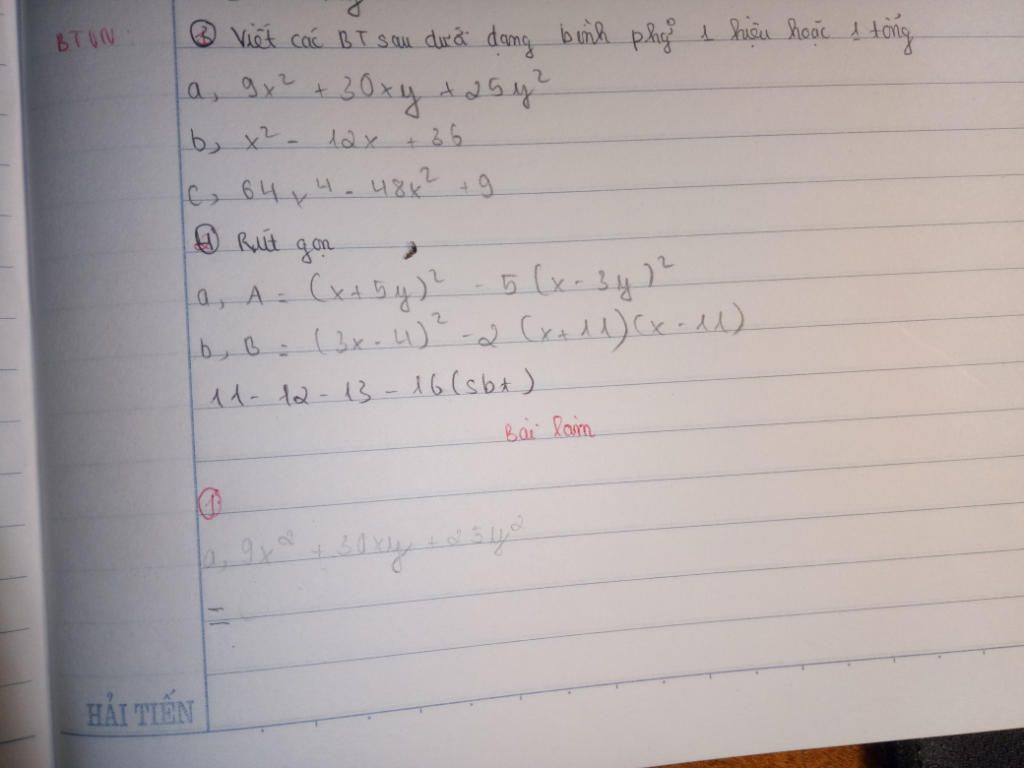 BTVN:
③ Viết các BT sau dưới dạng bình phg 1 hiệu hoặc 1 tổng
a, 9x² + 30xy + 25y²
b, x² - 12x + 36
c, 64x⁴ - 48x² + 9
④ Rút gọn
a, A = (x+5y)² - 5(x-3y)²
b, B = (3x-4)² - 2(x+11)(x-11)
11 - 12 - 13 - 16 (sbt)
Bài làm
①
a, 9x² + 30xy + 25y²
=
HẢI TIẾN